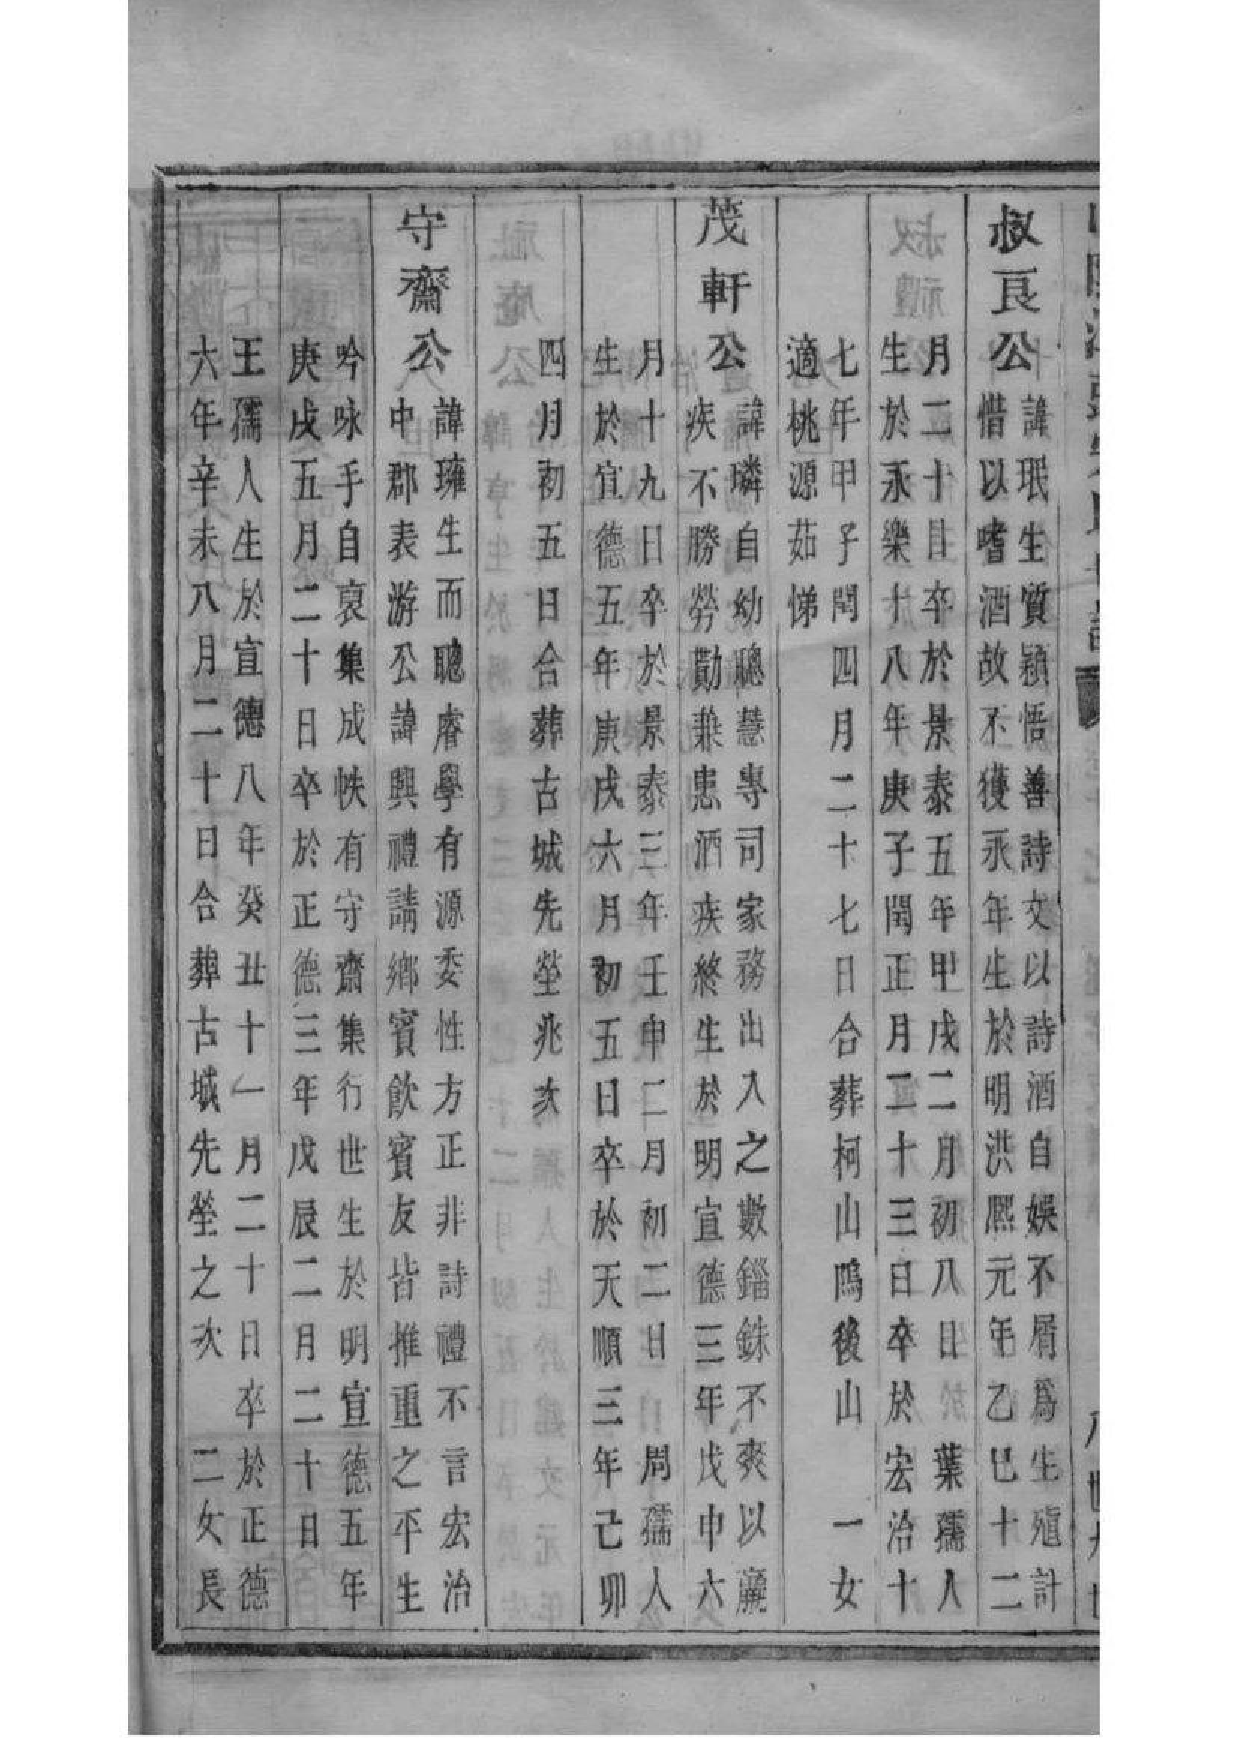 叔良公
諱珉生質穎悟善詩文以詩酒自娛不屑爲生殖計
惜以嗜酒故不獲永年生於明洪熙元年乙巳十二
月二十日卒於景泰五年甲戌二月初八日 葉孺人
生於永樂十八年庚子閏正月二十三日卒於宏治十
七年甲子閏四月二十七日合葬柯山鴫後山 一女
適桃源茹悌
茂軒公
諱璘自幼聰慧專司家務出入之數錙銖不爽以羸
疾不勝勞勩兼患酒疾終生於明宣德三年戊申六
月十九日卒於景泰三年壬申二月初二日 周孺人
生於宣德五年庚戌六月初五日卒於天順三年己卯
四月初五日合葬古城先塋兆次
守齋公
諱璀生而聰睿學有源委性方正非詩禮不言宏治
中郡表游公諱興禮請鄉賓飲賓友皆推重之平生
吟咏手自裒集成帙有守齋集行世生於明宣德五年
庚戌五月二十日卒於正德三年戊辰二月二十日
王孺人生於宣德八年癸丑十一月二十日卒於正德
六年辛未八月二十日合葬古城先塋之次 二女長